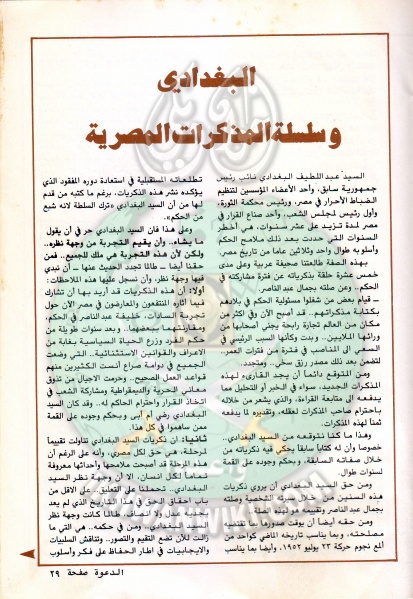 البغدادي
وسلسلة المذكرات المصرية
السيد عبد اللطيف البغدادي نائب رئيس
جمهورية سابق، وأحد الأعضاء المؤسسين لتنظيم
الضباط الأحرار في مصر، ورئيس محكمة الثورة،
وأول رئيس لمجلس الشعب، وأحد صناع القرار في
مصر لمدة تزيد على عشر سنوات، هي أخطر
السنوات التي حددت بعد ذلك ملامح الحكم
وأسلوبه طوال واحد وثلاثين عاما من تاريخ مصر.
بهذه الصفة طالعتنا صحيفة عربية وعلى مدى
خمس عشرة حلقة بذكرياته عن فترة مشاركته في
الحكم.. وعن صلته بجمال عبد الناصر.
– قيام بعض من شغلوا مسئولية الحكم في بلادهم
بكتابة مذكراتهم.. قد أصبح الآن وفي أكثر من
مكان من العالم تجارة رابحة يجني أصحابها من
ورائها الملايين.. وبدت وكأنها السبب الرئيسي في
السعي الى المناصب في فترة من فترات العمر..
لتضمن بعد ذلك مصدر رزق سخي.. ومتجدد.
ومن المتوقع دائما أن يجد القارىء لهذه
المذكرات الجديد، سواء في الخبر أو التحليل مما
يدفعه الى متابعة القراءة، والذي يشعر من خلاله
باحترام صاحب المذكرات لعقله، وتقديره لما يدفعه
ثمنا لهذه المذكرات.
وهذا ما كنا نتوقعه من السيد البغدادي..
خصوصا وأن له كتابا سابقا يحكي فيه ذكرياته من
خلال صفاته السابقة، وبحكم وجوده على القمة
لسنوات طوال.
ومن حق السيد البغدادي أن يروي ذكريات
هذه السنين من خلال سيرته الشخصية وصلته
بجمال عبد الناصر وتقييمه هو لهذه الصلة.
ومن حقه أيضا أن يوقت صدورها بما تقتضيه
مصلحته، وبما يناسب تاريخه الماضي كواحد من
ألمع نجوم حركة ٢٣ يوليو ١٩٥٢، وأيضا بما يناسب
تطلعاته المستقبلية في استعادة دوره المفقود الذي
يؤكده نشر هذه الذكريات، برغم ما كتبه من قدم
لها من أن السيد البغدادي «ترك السلطة لأنه شبع
من الحكم».
وعلى هذا فإن السيد البغدادي حر في أن يقول
ما يشاء.. وأن يقيم التجربة من وجهة نظره..
ولكن لأن هذه التجربة هي ملك للجميع.. فمن
حقنا أيضا – طالما تجدد الحديث عنها – أن نبدي
فيها وجهة نظر وأن نسجل عليها هذه الملاحظات:
أولا: أن هذه الذكريات قد أريد بها أن تشارك
فيما أثاره المنتفعون والمعارضون في مصر الآن حول
تجربة السادات، خليفة عبد الناصر في الحكم،
ومقارنتهما ببعضهما.. وبعد سنوات طويلة من
حكم الفرد وزرع الحياة السياسية بغابة من
الاعراف والقوانين الاستثنائية.. التي وضعت
الجميع في دوامة صراع أنست الكثيرين منهم
قواعد العمل الصحيح.. وحرمت الأجيال من تذوق
معاني الحرية والديمقراطية ومشاركة الشعب في
اتخاذ القرار واحترام الحاكم له.. وقد كان السيد
البغدادي رضي أم أبى وبحكم وجوده على القمة
ممن ساهموا في كل هذا.
ثانيا: أن ذكريات السيد البغدادي تناولت تقييما
لمرحلة، هي حق لكل مصري، وأنه على الرغم أن
هذه المرحلة قد أصبحت ملامحها وأحداثها معروفة
تماما لكل انسان، إلا أن وجهة نظر السيد
البغدادي.. تحملنا على التعليق، على الأقل من
باب احقاق الحق في هذا التاريخ الذي لم يعد
بجديد عدل ولا انصاف، فالما كانت وجهة نظر
السيد البغدادي، ومن في حكمه.. هي التي ما
زالت للآن تضع التقييم والتصور.. وتناقش السلبيات
والايجابيات في اطار الحفاظ على فكر وأسلوب
الدعوة صفحة ٢٩